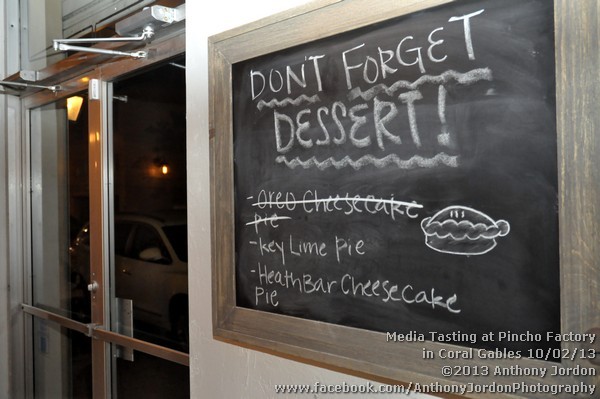 DON'T FORGET
DESSERT!
-Oreo Cheesecake
Pie
-Key Lime Pie
-Heath Bar Cheesecake
Pie
Media Tasting at Pincho Factory
in Coral Gables 10/02/13
©2013 Anthony Jordon
www.facebook.com/AnthonyJordonPhotography